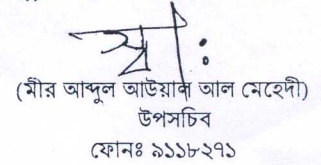 স্বাঃ
(মীর আব্দুল আউয়াল আল মেহেদী)
উপসচিব
ফোনঃ ৯১১৮২৭১